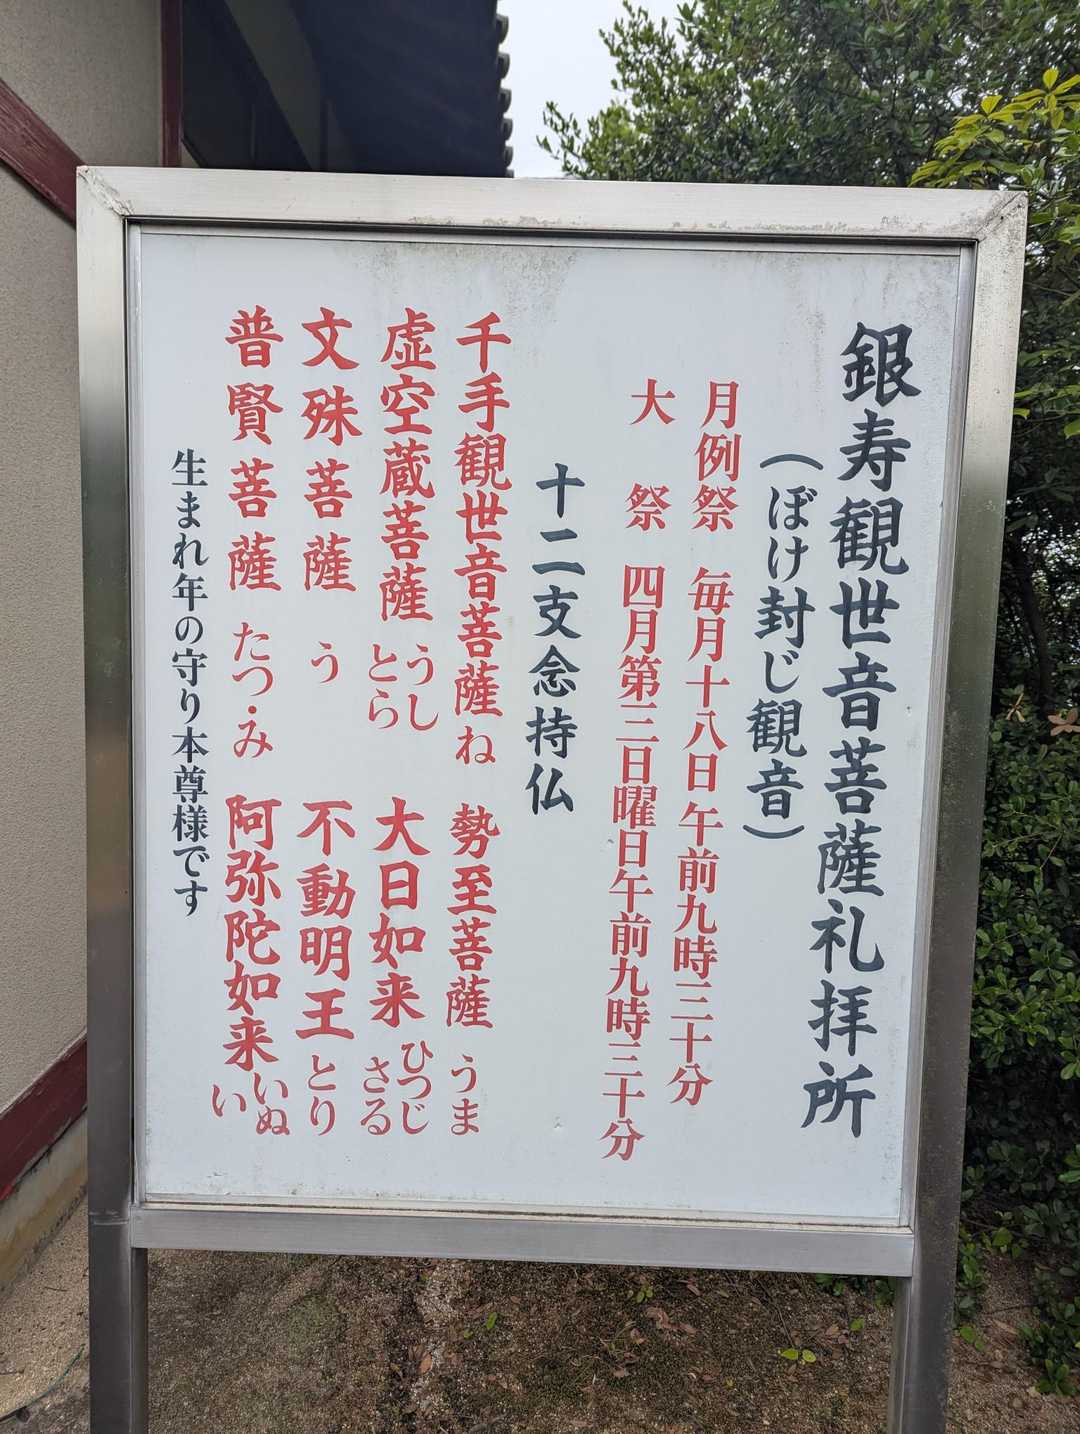 銀寿観世音菩薩礼拝所
（ぼけ封じ観音）
月例祭 毎月十八日午前九時三十分
大祭 四月第三日曜日午前九時三十分
十二支念持仏
千手観世音菩薩 ね 勢至菩薩 うま
虚空蔵菩薩 うし とら 大日如来 ひつじ さる
文殊菩薩 う 不動明王 とり
普賢菩薩 たつ・み 阿弥陀如来 いぬ い
生まれ年の守り本尊様です